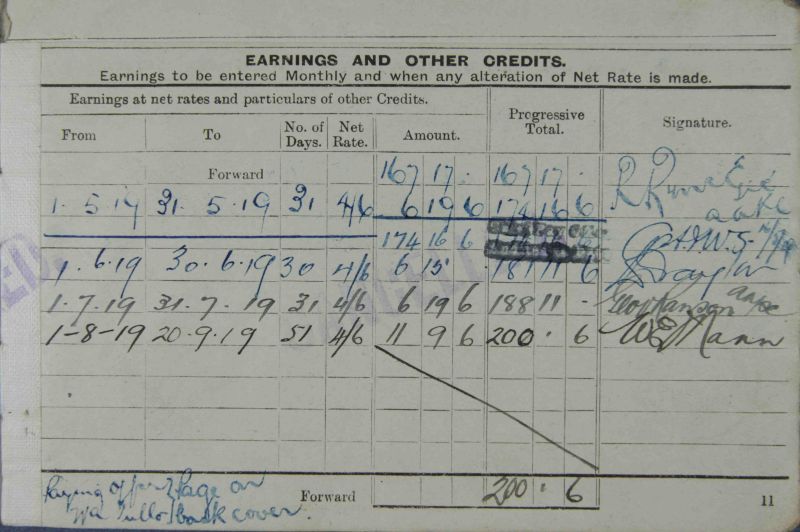 EARNINGS AND OTHER CREDITS.
Earnings to be entered Monthly and when any alteration of Net Rate is made.
Earnings at net rates and particulars of other Credits.
From To No. of Days. Net Rate. Amount. Progressive Total. Signature.
Forward 167 17 · 167 17 ·
1. 5.19 31. 5.19 31 4/6 6 19 6 174 16 6
174 16 6
1.6.19 30.6.19 30 4/6 6 15 181 11 6
1.7.19 31.7.19 31 4/6 6 19 6 188 11 ·
1-8-19 20.9.19 51 4/6 11 9 6 200 · 6 Mann
Page on
back cover.
Forward 200 · 6
11